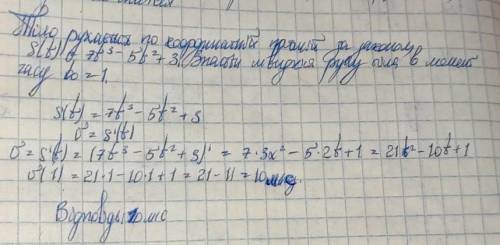 Тіло рухається по координатній прямій за законом
s(t) = 7t³ - 5t² + 3. Знайти швидкість руху тіла в момент
часу t₀ = 1.
s(t) = 7t³ - 5t² + 3
v = s'(t)
v = s'(t) = (7t³ - 5t² + 3)' = 7·3x² - 5·2t + 1 = 21t² - 10t + 1
v(1) = 21·1 - 10·1 + 1 = 21 - 11 = 10 м/с
Відповідь 10 мс